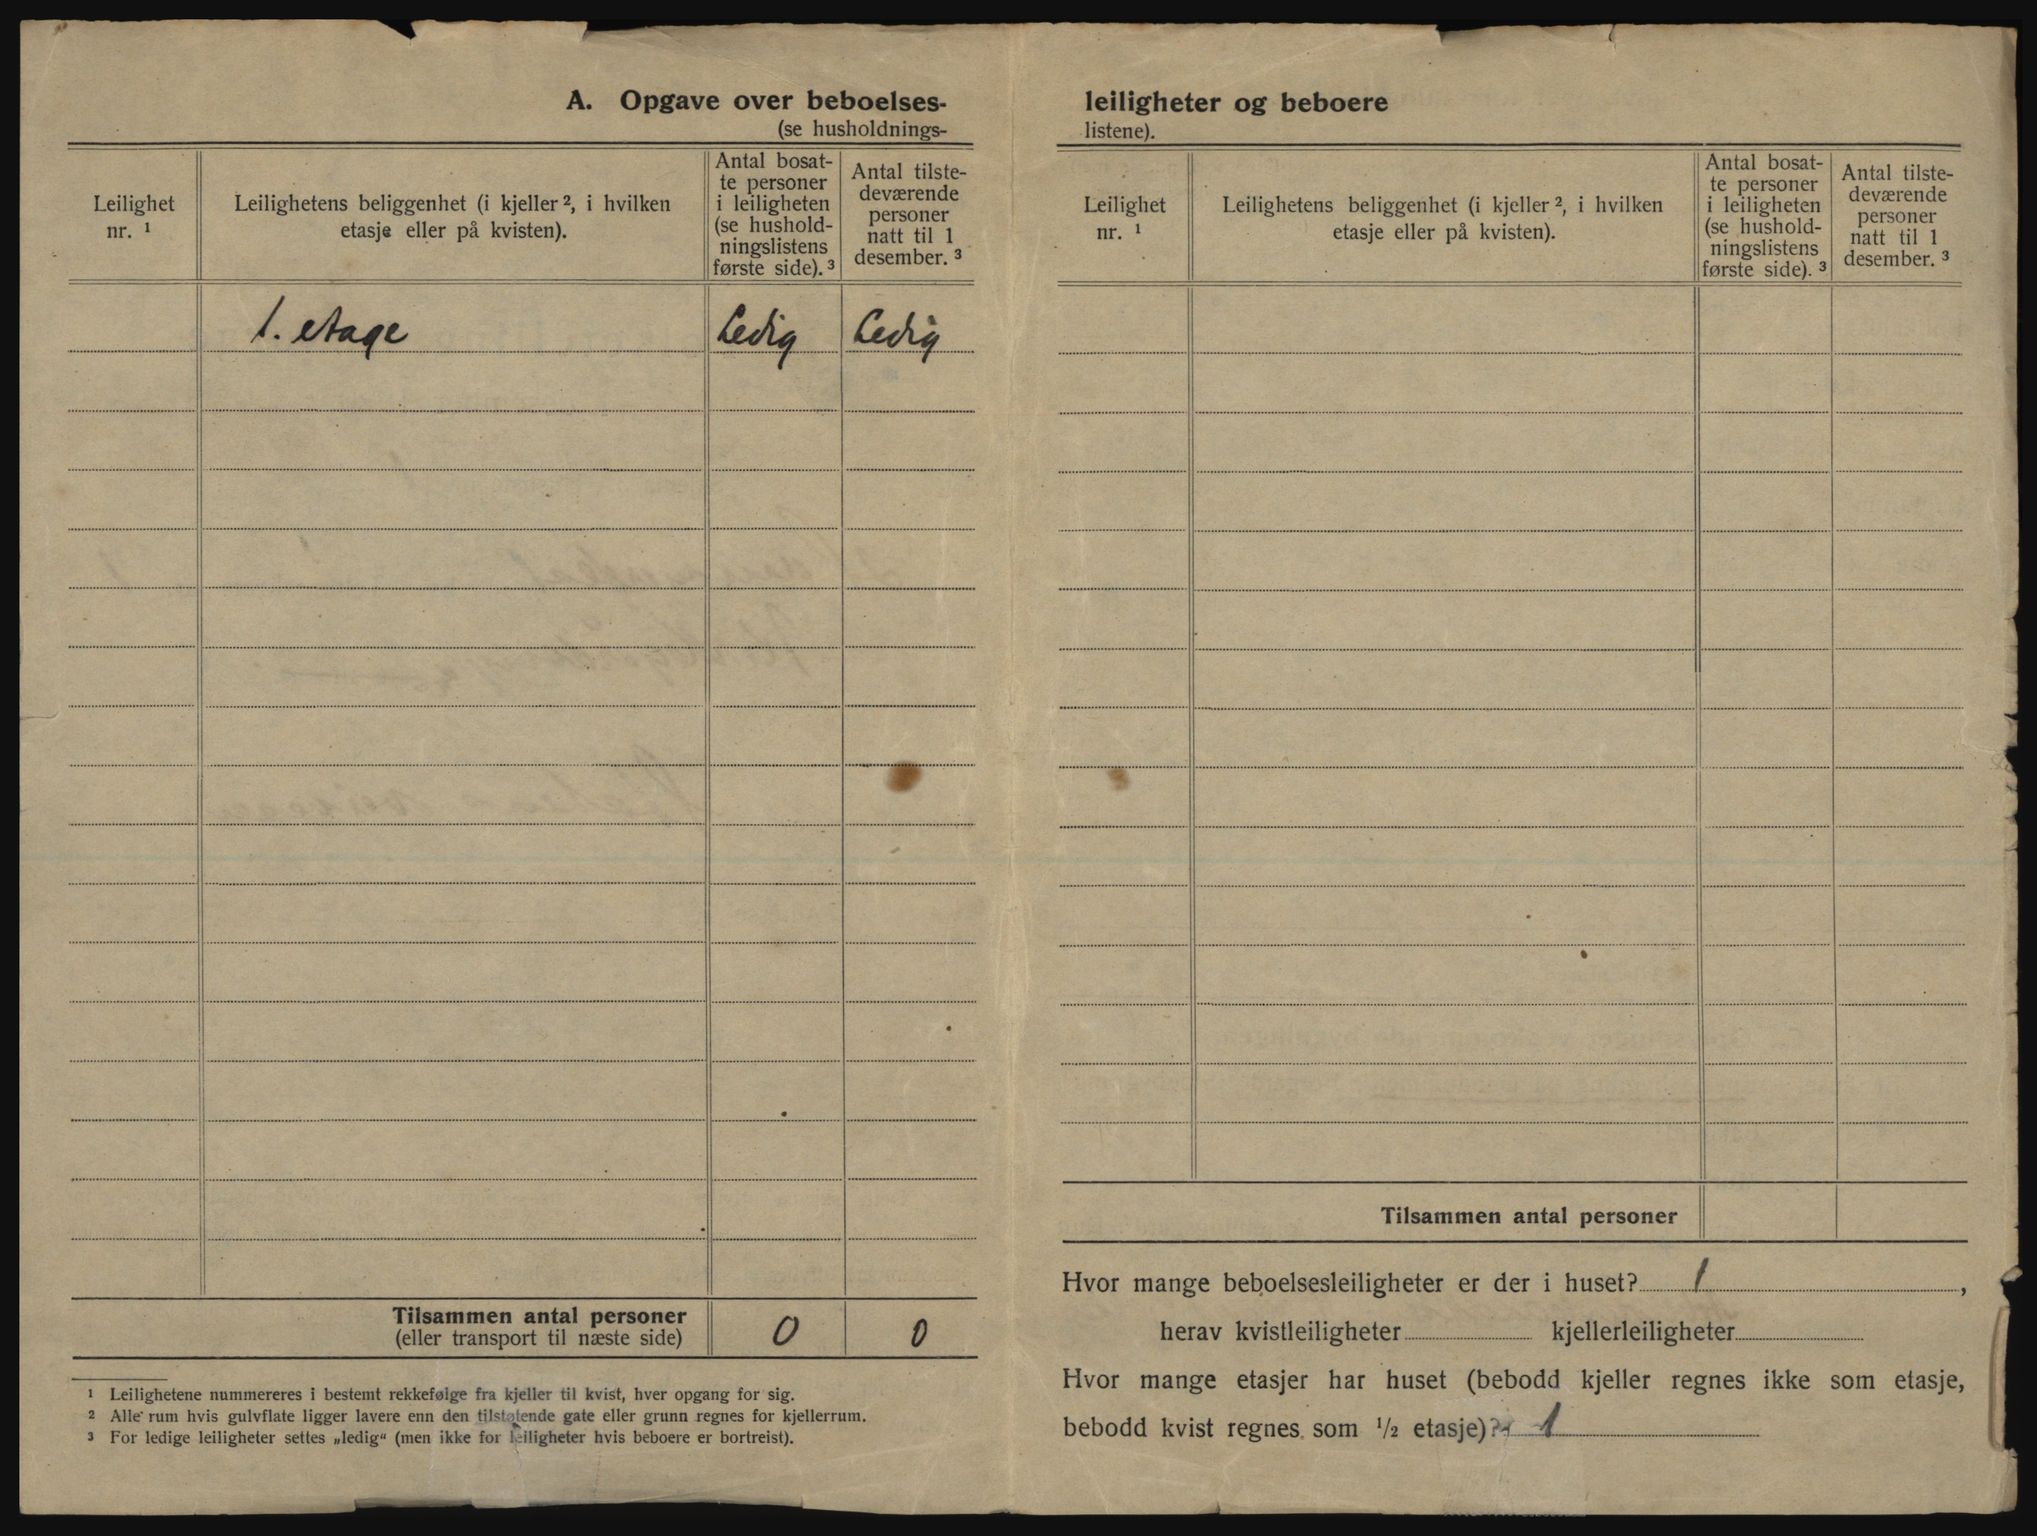 A. Opgave over beboelses-
(se husholdnings-
Leilighet
nr. ¹
Leilighetens beliggenhet (i kjeller ², i hvilken
etasje eller på kvisten).
Antal bosat-
te personer
i leiligheten
(se hushold-
ningslistens
første side). ³
Antal tilste-
deværende
personer
natt til 1
desember. ³
1. etage Ledig Ledig
Tilsammen antal personer
(eller transport til næste side) 0 0
¹ Leilighetene nummereres i bestemt rekkefølge fra kjeller til kvist, hver opgang for sig.
² Alle rum hvis gulvflate ligger lavere enn den tilstøtende gate eller grunn regnes for kjellerrum.
³ For ledige leiligheter settes „ledig“ (men ikke for leiligheter hvis beboere er bortreist).
leiligheter og beboere
listene).
Leilighet
nr. ¹
Leilighetens beliggenhet (i kjeller ², i hvilken
etasje eller på kvisten).
Antal bosat-
te personer
i leiligheten
(se hushold-
ningslistens
første side). ³
Antal tilste-
deværende
personer
natt til 1
desember. ³
Tilsammen antal personer
Hvor mange beboelsesleiligheter er der i huset? 1 ,
herav kvistleiligheter kjellerleiligheter
Hvor mange etasjer har huset (bebodd kjeller regnes ikke som etasje,
bebodd kvist regnes som ½ etasje)? 1